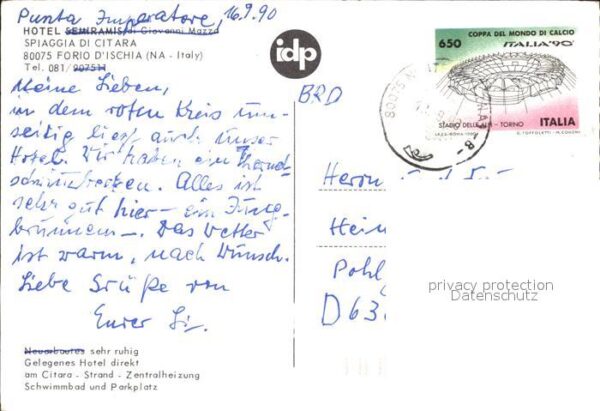 Punta Imperatore, 16.9.90
HOTEL SEMIRAMIS di Giovanni Mazza
SPIAGGIA DI CITARA
80075 FORIO D'ISCHIA (NA - Italy)
Tel. 081/907511
idp
650
COPPA DEL MONDO DI CALCIO
ITALIA'90
STADIO DELLE ALPI - TORINO
ITALIA
I.P.Z.S.-ROMA-1990
80075
BRD
Meine Lieben,
in dem roten Kreis um-
seitig liegt auch unser
Hotel. Wir haben ein Thermal-
schwimmbecken. Alles ist
sehr gut hier - ein Jung-
brunnen -. Das Wetter
ist warm, nach Wunsch.
Liebe Grüße von
Eurer
Herrn
Hein
Pohl
D63
privacy protection
Datenschutz
Neuerbautes sehr ruhig
Gelegenes Hotel direkt
am Citara - Strand - Zentralheizung
Schwimmbad und Parkplatz